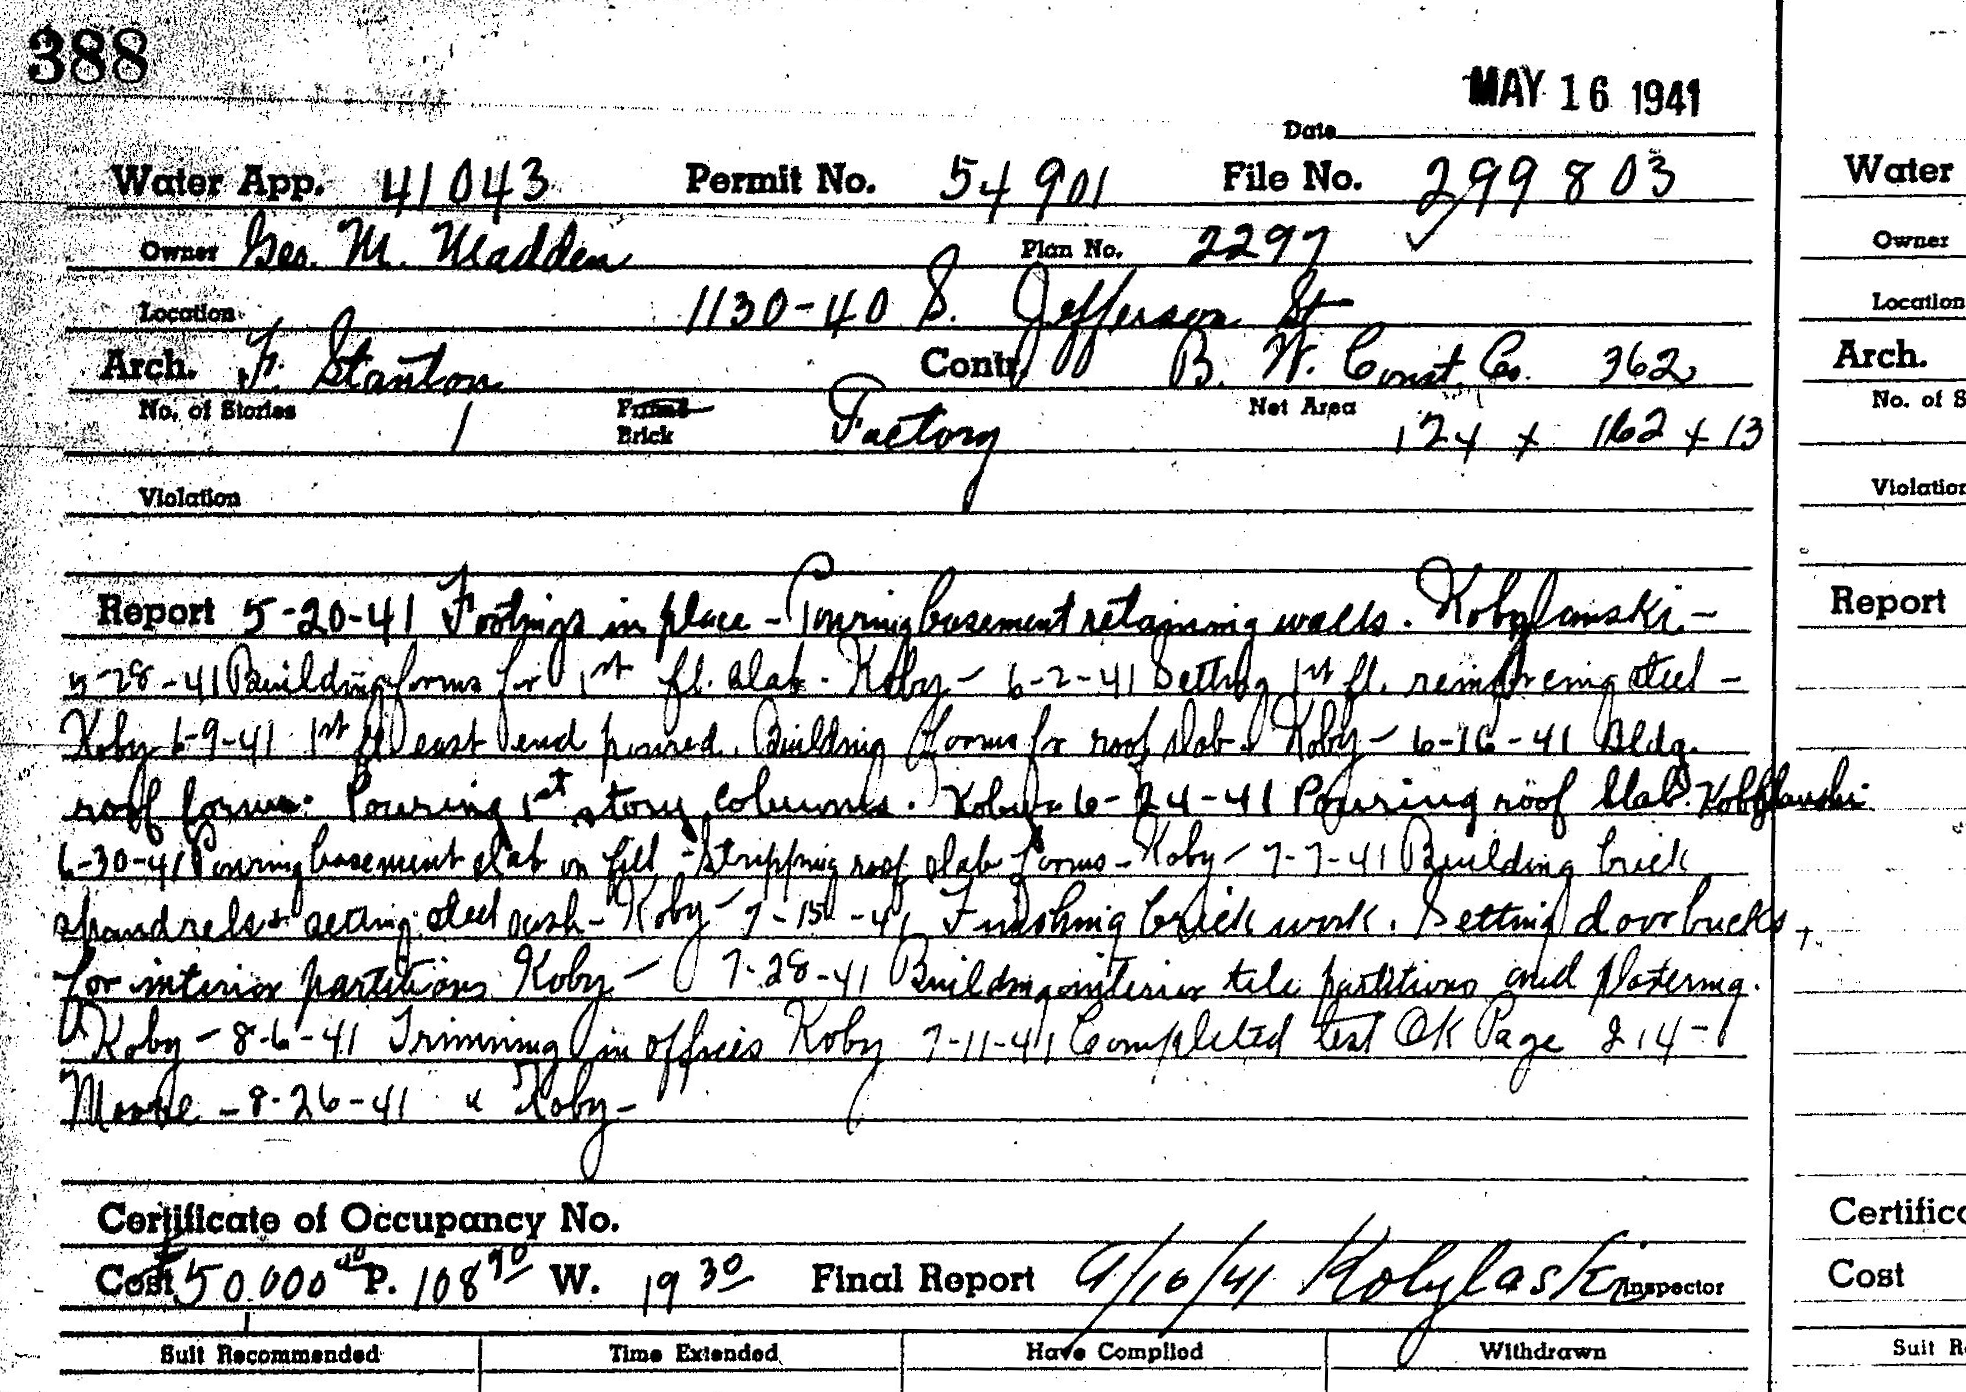 388
MAY 16 1941
Date
Water App. 41043 Permit No. 54901 File No. 299803
Owner Geo. M. Madden Plan No. 2297 ✓
Location 1130-40 S. Jefferson St
Arch. F. Stanton Contr. B. W. Const. Co. 362
No. of Stories 1 Frame Brick Factory Net Area 124 x 162 x 13
Violation
Report 5-20-41 Footings in place - Pouring basement retaining walls. Kobylanski -
5-28-41 Building forms for 1st fl. slab - Koby - 6-2-41 Setting 1st fl. reinforcing steel -
Koby 6-9-41 1st fl east end poured. Building forms for roof slab. Koby - 6-16-41 Bldg.
roof forms. Pouring 1st story columns. Koby - 6-24-41 Pouring roof slab. Kobylanski
6-30-41 Pouring basement slab on fill - Stripping roof slab forms - Koby - 7-7-41 Building brick
spandrels + setting steel sash - Koby - 7-15-41 Finishing brick work. Setting door bucks
for interior partitions Koby - 7-28-41 Building interior tile partitions and plastering.
Koby - 8-6-41 Trimming in offices Koby 7-11-41 Completed test OK Page 214 -
Moore - 8-26-41 " Koby -
Certificate of Occupancy No.
Cost $50,000 00 P. 108 90 W. 19 30 Final Report 9/10/41 Kobylaski Inspector
Suit Recommended Time Extended Have Complied Withdrawn
Water
Owner
Location
Arch.
No. of S
Violation
Report
Certific
Cost
Suit R